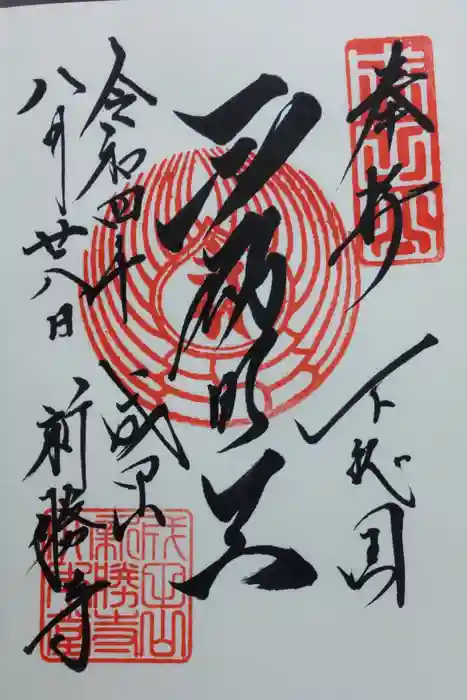 奉拝
下総国
不動明王
令和四年
八月廿八日
成田山
新勝寺